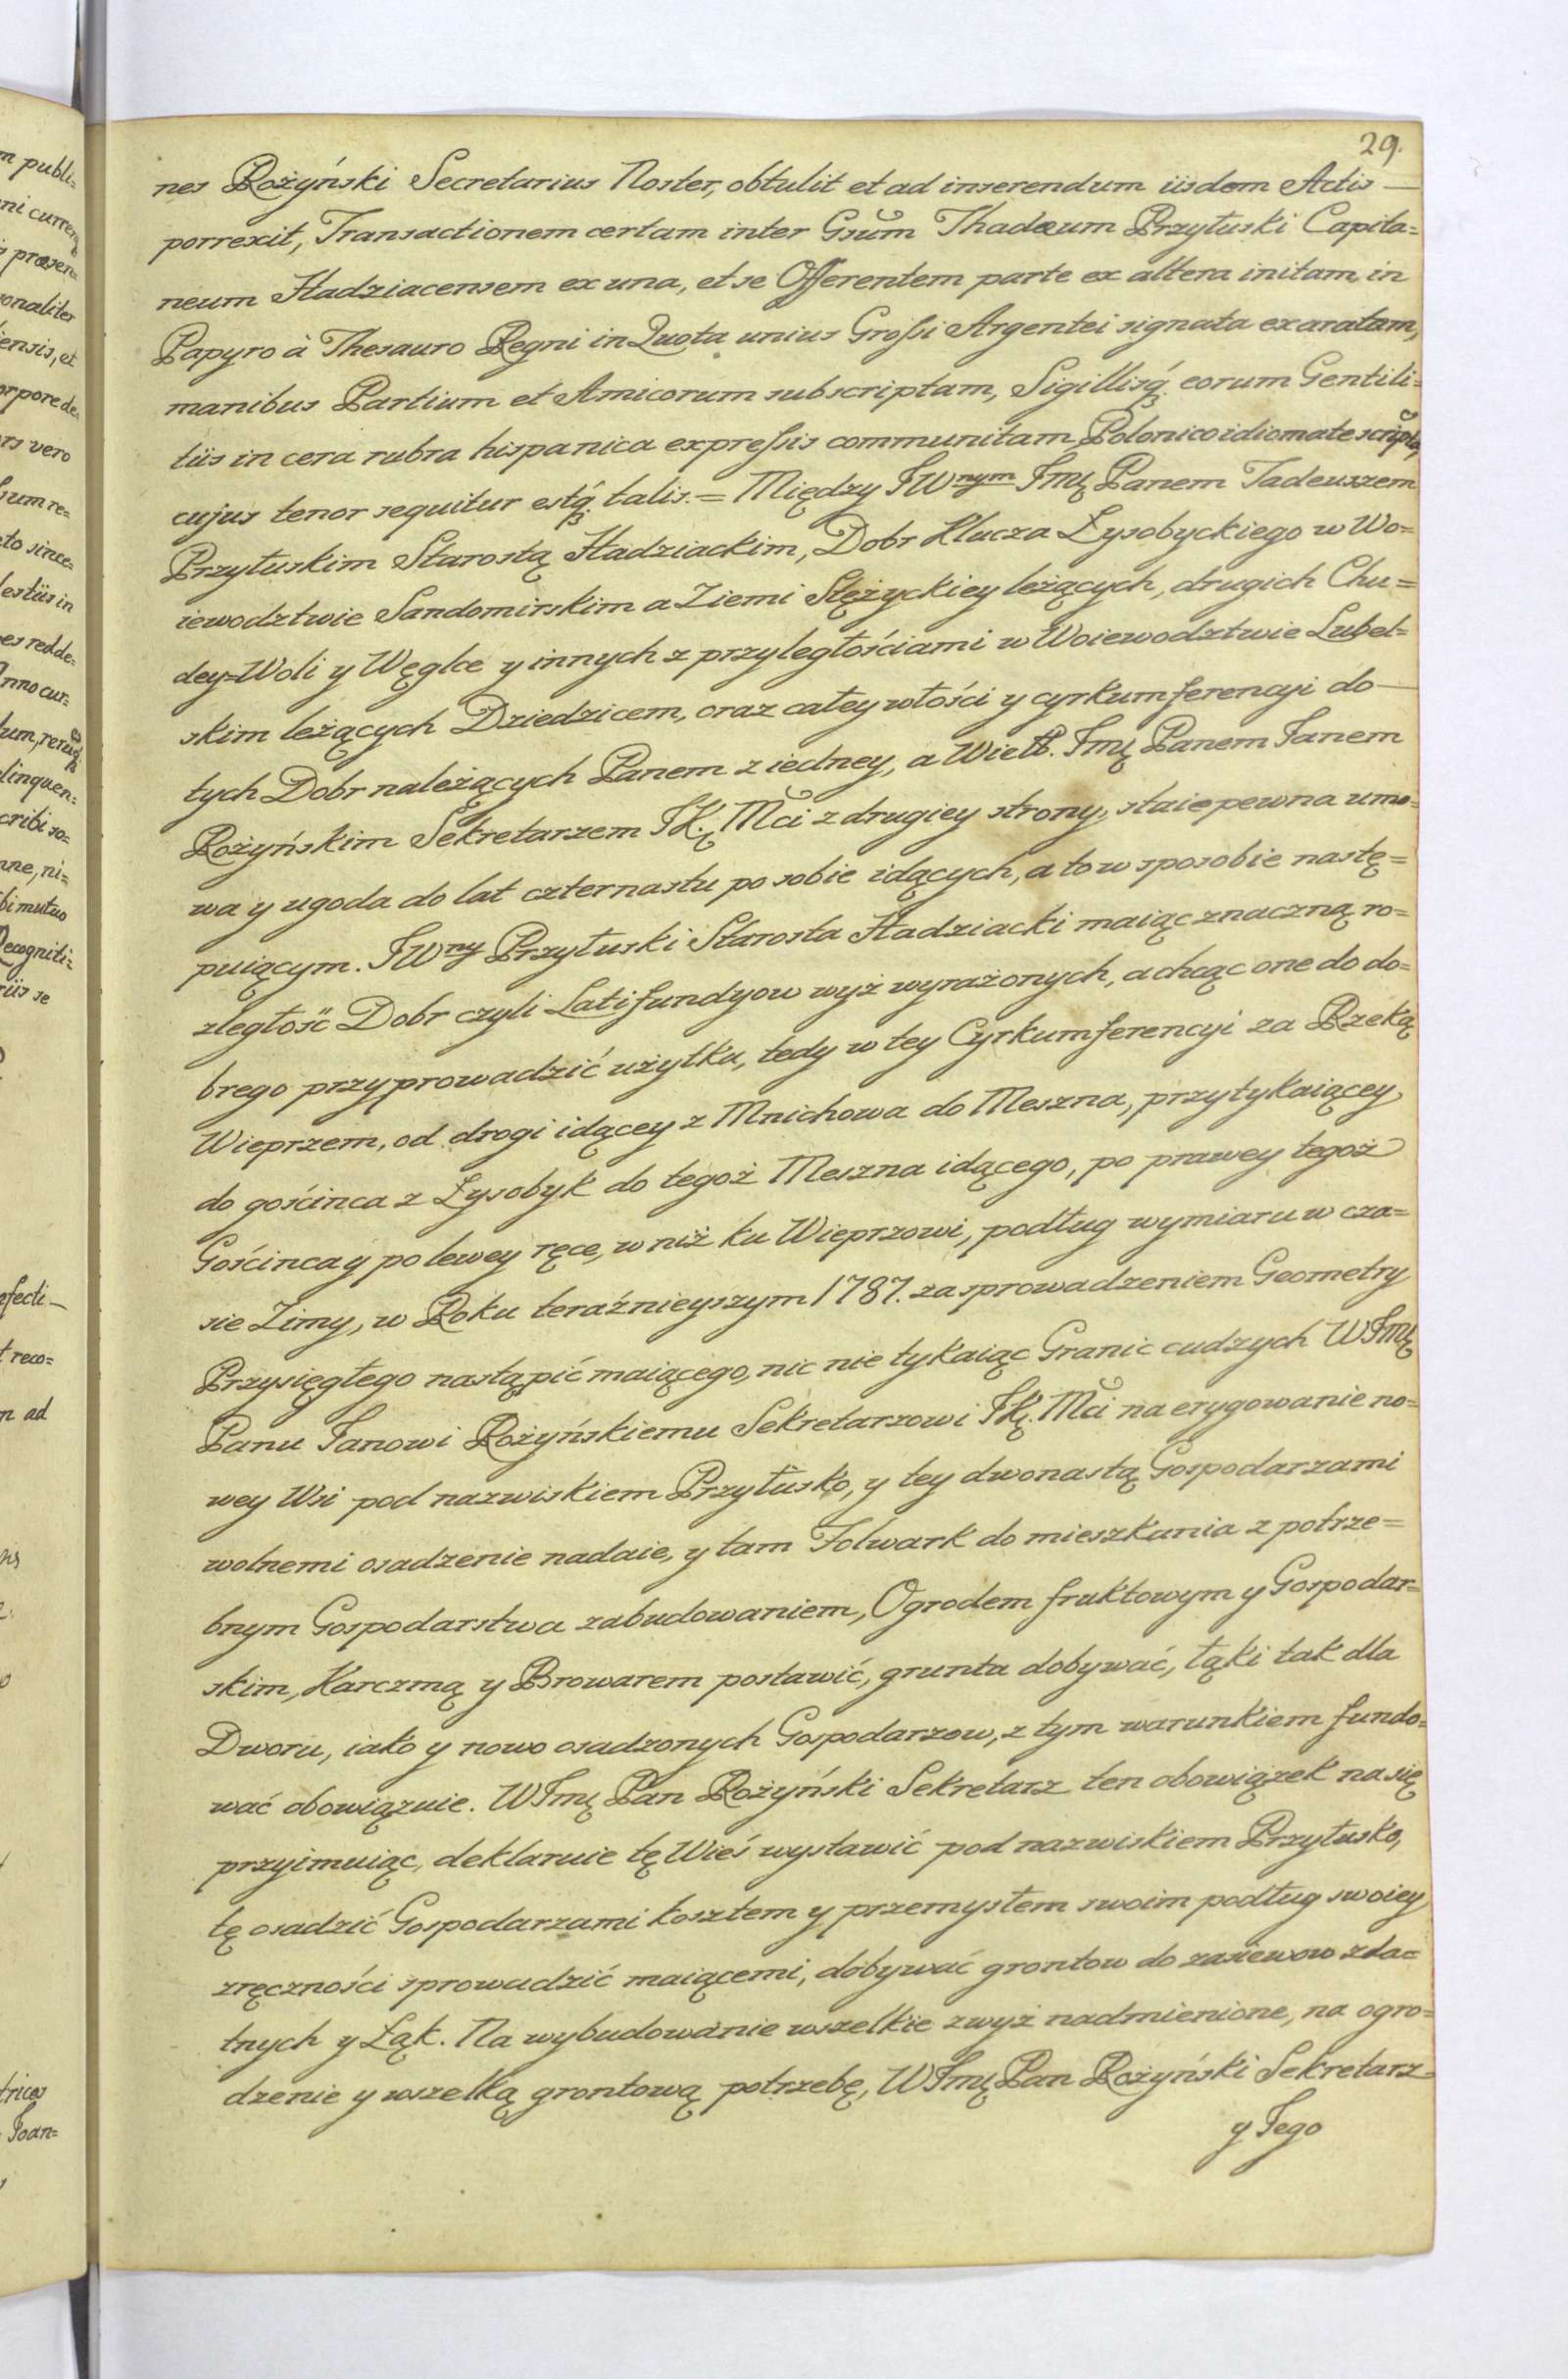 29.
nes Rożyński Secretarius Noster, obtulit et ad inserendum iisdem Actis —
porrexit, Transactionem certam inter Gsum Thadæum Przyłuski Capita=
neum Hadziacensem ex una, et se Offerentem parte ex altera initam, in
Papyro à Thesauro Regni in Quota unius Grossi Argentei signata exaratam,
manibus Partium et Amicorum subscriptam, Sigillisq. eorum Gentili=
tiis in cera rubra hispanica expressis communitam, Polonico idiomate scripta,
cujus tenor sequitur estq. talis. = Między JWnym Jmę Panem Tadeuszem
Przyłuskim Starostą Hadziackim, Dobr Klucza Łysobyckiego w Wo=
iewodztwie Sandomirskim a Ziemi Stężyckiey leżących, drugich Chu=
dey=Woli y Węglce y innych z przyległościami w Woiewodztwie Lubel=
skim leżących Dziedzicem, oraz całey włości y cyrkumferencyi do —
tych Dobr należących Panem z iedney, a Wielb. Jmę Panem Janem
Rożyńskim Sekretarzem JK. Mci z drugiey strony, staie pewna umo=
wa y ugoda do lat czternastu po sobie idących, a to w sposobie nastę=
puiącym. JWny Przyłuski Starosta Hadziacki maiąc znaczną ro=
zległość Dobr czyli Latifundyow wyż wyrażonych, a chcąc one do do=
brego przyprowadzić użytku, tedy w tey Cyrkumferencyi za Rzeką
Wieprzem, od drogi idącey z Mnichowa do Meszna, przytykaiącey
do gościnca z Łysobyk do tegoż Meszna idącego, po prawey tegoż
Gościnca y po lewey ręce, w niż ku Wieprzowi, podług wymiaru w cza=
sie Zimy, w Roku teraźnieyszym 1787. za sprowadzeniem Geometry
Przysięgłego nastąpić maiącego, nic nie tykaiąc Granic cudzych WJmę
Panu Janowi Rożyńskiemu Sekretarzowi JK. Mci na erygowanie no=
wey Wsi pod nazwiskiem Przyłusko, y tey dwonastą Gospodarzami
wolnemi osadzenie nadaie, y tam Folwark do mieszkania z potrze=
bnym Gospodarstwa zabudowaniem, Ogrodem fruktowym y Gospodar=
skim, Karczmą y Browarem postawić, grunta dobywać, łąki tak dla
Dworu, iako y nowo osadzonych Gospodarzow, z tym warunkiem fundo=
wać obowiązuie. WJmę Pan Rożyński Sekretarz ten obowiązek na się
przyimuiąc, deklaruie tę Wieś wystawić pod nazwiskiem Przyłusko,
tę osadzić Gospodarzami kosztem y przemysłem swoim podług swoiey
zręczności sprowadzić maiącemi, dobywać grontow do zasiewow zda=
tnych y Łąk. Na wybudowanie wszelkie zwyż nadmienione, na ogro=
dzenie y wszelką grontową potrzebę, WJmę Pan Rożyński Sekretarz
y Jego